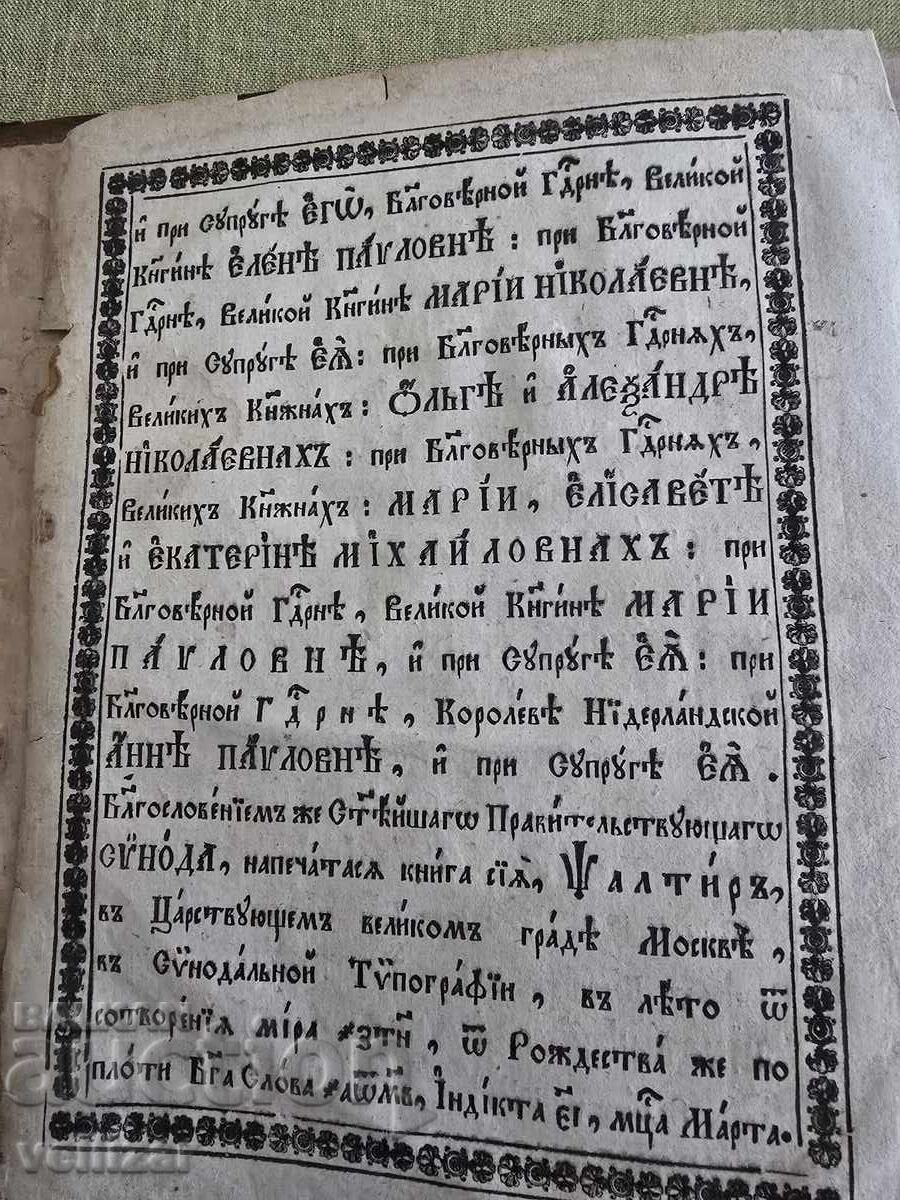 и҆ при Сꙋпрꙋгѣ Є҆гѡ̀, Бл҃говѣ́рной Гдⷭ҇рнѣ, Вели́кой
Кн҃ги́нѣ Є҆ле́нѣ Па́ѵловнѣ: при Бл҃говѣ́рной
Гдⷭ҇рнѣ, Вели́кой Кн҃ги́нѣ Марі́и Нікола́евнѣ,
и҆ при Сꙋпрꙋ́гѣ Є҆ѧ̀: при Бл҃говѣ́рныхъ Гдⷭ҇рнѧхъ,
Вели́кихъ Кн҃жна́хъ: Ѻ҆́льгѣ и҆ А҆леѯа́ндрѣ
Нікола́евнахъ: при Бл҃говѣ́рныхъ Гдⷭ҇рнѧхъ,
Вели́кихъ Кн҃жна́хъ: Марі́и, Є҆лісаве́тѣ
и҆ Є҆катері́нѣ Міха́йловнахъ: при
Бл҃говѣ́рной Гдⷭ҇рнѣ, Вели́кой Кн҃ги́нѣ Марі́и
Па́ѵловнѣ, и҆ при Сꙋпрꙋ́гѣ Є҆ѧ̀: при
Бл҃говѣ́рной Гдⷭ҇рнѣ, Короле́вѣ Нїдерла́ндской
А҆́ннѣ Па́ѵловнѣ, и҆ при Сꙋпрꙋ́гѣ Є҆ѧ̀.
Бл҃гослове́нїемъ же Ст҃ѣ́йшагѡ Прави́тельствꙋющагѡ
Сѷно́да, напеча́тасѧ кни́га сїѧ̀, Ѱалти́рь,
въ Ца́рствꙋющемъ вели́комъ гра́дѣ Москвѣ̀,
въ Сѷнода́льной Тѷпогра́фїи, въ лѣ́то ѿ
сотворе́нїѧ мі́ра ҂зтн҃, ѿ Рождества́ же по
пло́ти Бг҃а Сло́ва ҂аѿмв҃, І҆нді́кта є҃і, мцⷭ҇а Ма́рта.
BALKAN
auction
velizar